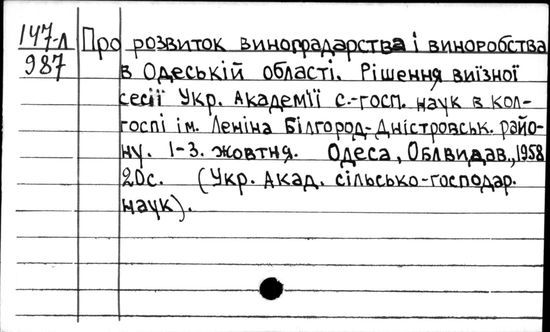 147-л
987
Про розвиток виноградарства і виноробства
в Одеській області. Рішення виїзної
сесії Укр. Академії с.-госп. наук в кол-
госпі ім. Леніна Білгород-Дністровськ. райо-
ну. 1-3. жовтня. Одеса, Облвидав., 1958
20с. (Укр. Акад. сільсько-господар.
наук).